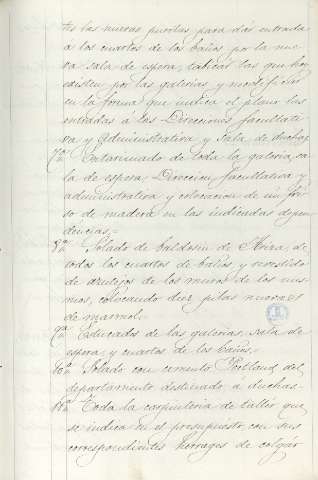 tes las nuevas puertas para dar entrada
á los cuartos de los baños por la nue-
va sala de espera, tabicar las que hoy
existen por las galerias y modificar
en la forma que indica el plano las
entradas a las Direcciones facultati-
va y administrativa y sala de duchas.
7ª Entarimado de toda la galeria, sa-
la de espera, Direccion facultativa y
administrativa y colocacion de un friso
de madera en las indicadas depen-
dencias.=
8ª Solado de baldosin de Ariza de
todos los cuartos de baños y revestido
de azulejos de los muros de los mis-
mos, colocando diez pilas nuevas
de marmol.
9ª Estucados de las galerias, sala de
espera y cuartos de los baños.
10ª Solado con cemento Portland del
departamento destinado á duchas.
11ª Toda la carpinteria de taller que
se indica en el presupuesto con sus
correspondientes herrages de colgar